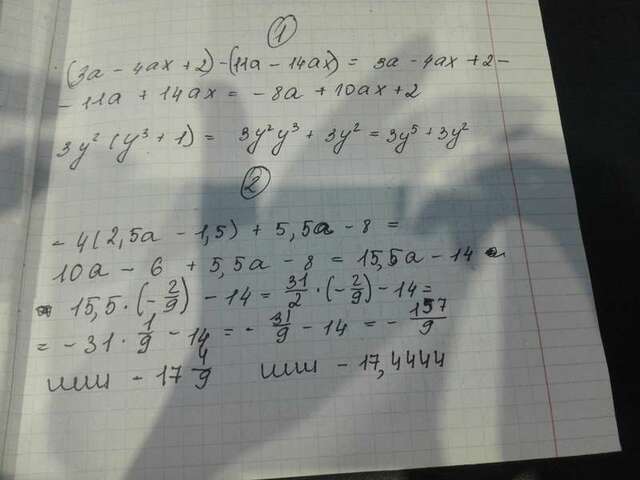 1
(3a - 4ax + 2) - (11a - 14ax) = 3a - 4ax + 2 -
- 11a + 14ax = - 8a + 10ax + 2
3y² (y³ + 1) = 3y²y³ + 3y² = 3y⁵ + 3y²
2
- 4(2,5a - 1,5) + 5,5a - 8 =
10a - 6 + 5,5a - 8 = 15,5a - 14
15,5 · (- 2/9) - 14 = 31/2 · (- 2/9) - 14 =
= - 31 · 1/9 - 14 = - 31/9 - 14 = - 157/9
или - 17 4/9 или - 17,4444